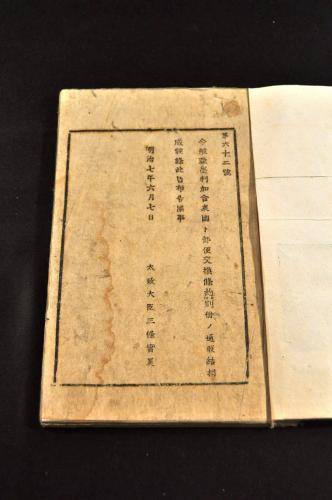 第六十二號
今般亞墨利加合衆國ト郵便交換條約別冊ノ通取結相
成候條此旨布告候事
明治七年六月七日
太政大臣三條實美